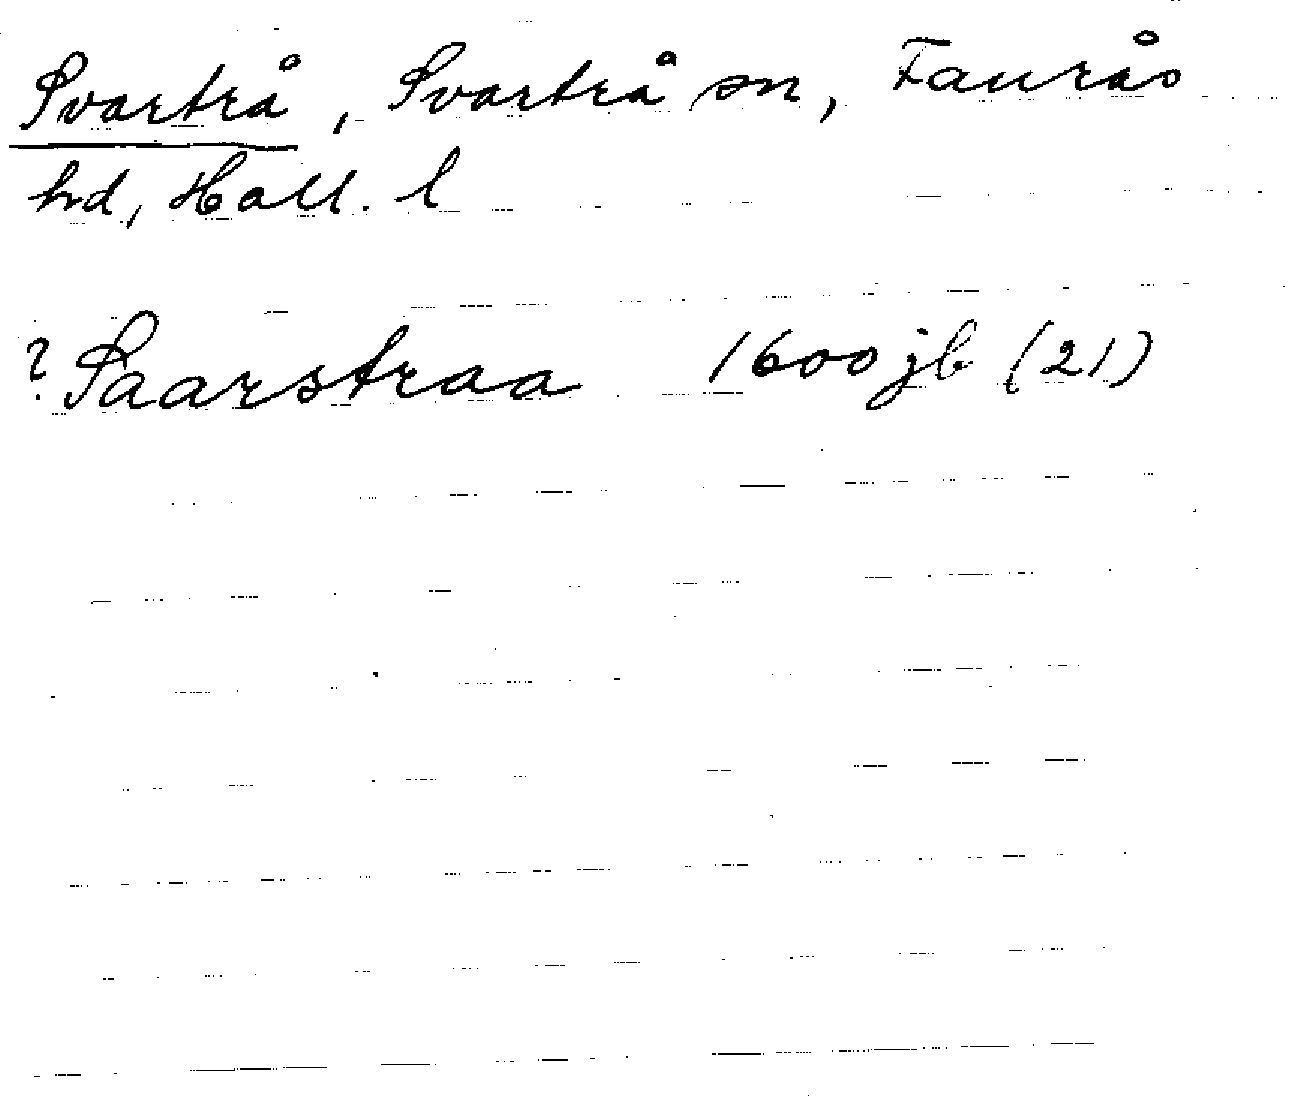 Svartrå, Svartrå sn, Faurås
hd, Hall. l
? Saarstraa 1600 jb (21)